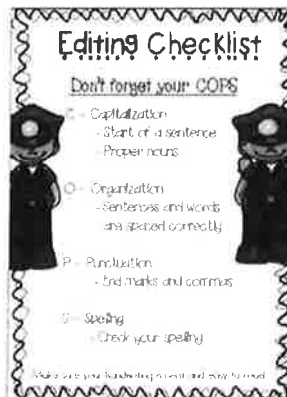 Editing Checklist
Don't forget your COPS
C - Capitalization
- Start of a sentence
- Proper nouns
O - Organization
- Sentences and words
are spaced correctly
P - Punctuation
- End marks and commas
S - Spelling
- Check your spelling
Make sure your handwriting is neat and easy to read